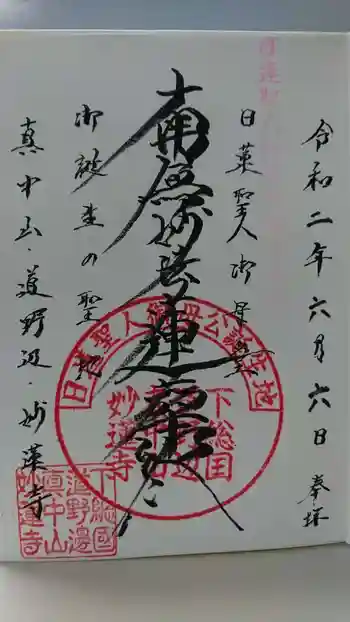 令和二年六月六日 奉拝
日蓮聖人御母
南無妙法蓮華経
御誕生の聖
真中山・道野辺・妙蓮寺
日蓮聖人御母公誕生地
下総国
妙蓮寺
下総國
道野邊
眞中山
妙蓮寺